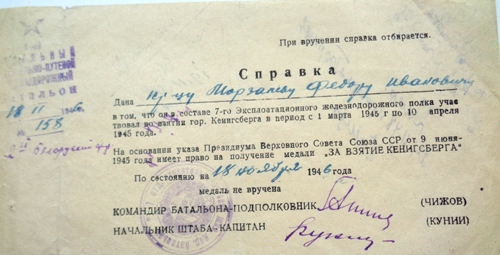 При вручении справка отбирается.
Справка
Дана кр-цу Моргалеву Федору Ивановичу
в том, что он в составе 7-го Эксплоатационного железнодорожного полка учас
твовал во взятии гор. Кенигсберга в период с 1 марта 1945 г по 10 апреля
1945 года.
На основании указа Президиума Верховного Совета Союза ССР от 9 июня
1945 года имеет право на получение медали „ЗА ВЗЯТИЕ КЕНИГСБЕРГА"
По состоянию на 18 ноября 1946 года
медаль не вручена
КОМАНДИР БАТАЛЬОНА-ПОДПОЛКОВНИК (ЧИЖОВ)
НАЧАЛЬНИК ШТАБА-КАПИТАН (КУНИИ)
18 II 1946
№ 158